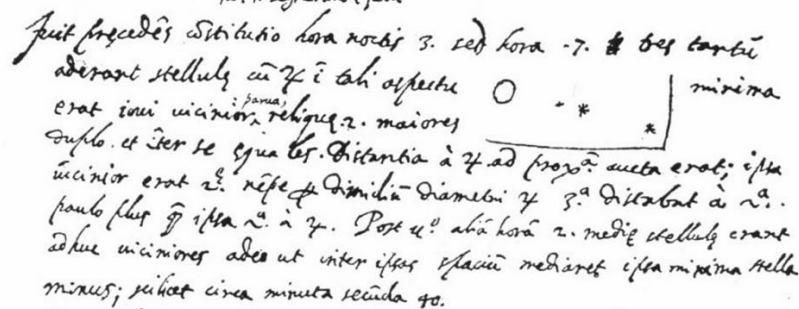 fuit pręcedẽs cõstitutio hora noctis 3. sed hora 7. tres tantũ
aderant stellulę cũ ♃ ĩ tali aspectu minima
erat ioui uicinior, parua, reliquę 2. maiores
duplo. et ĩter se ęquales. Distantia à ♃ ad proxᵃ aucta erat; ipsa
uicinior erat 2ę nẽpe dimidiũ diametri ♃ 3ᵃ distabat à 2ᵃ.
paulo plus ꝙ̃ ipsa 2ᵃ à ♃. Post uº aliã horã 2. medię stellulę erant
adhuc uiciniores adeo ut inter ipsas spaciũ mediaret ipsa minima stella
minus; scilicet circa minuta secũda 40.